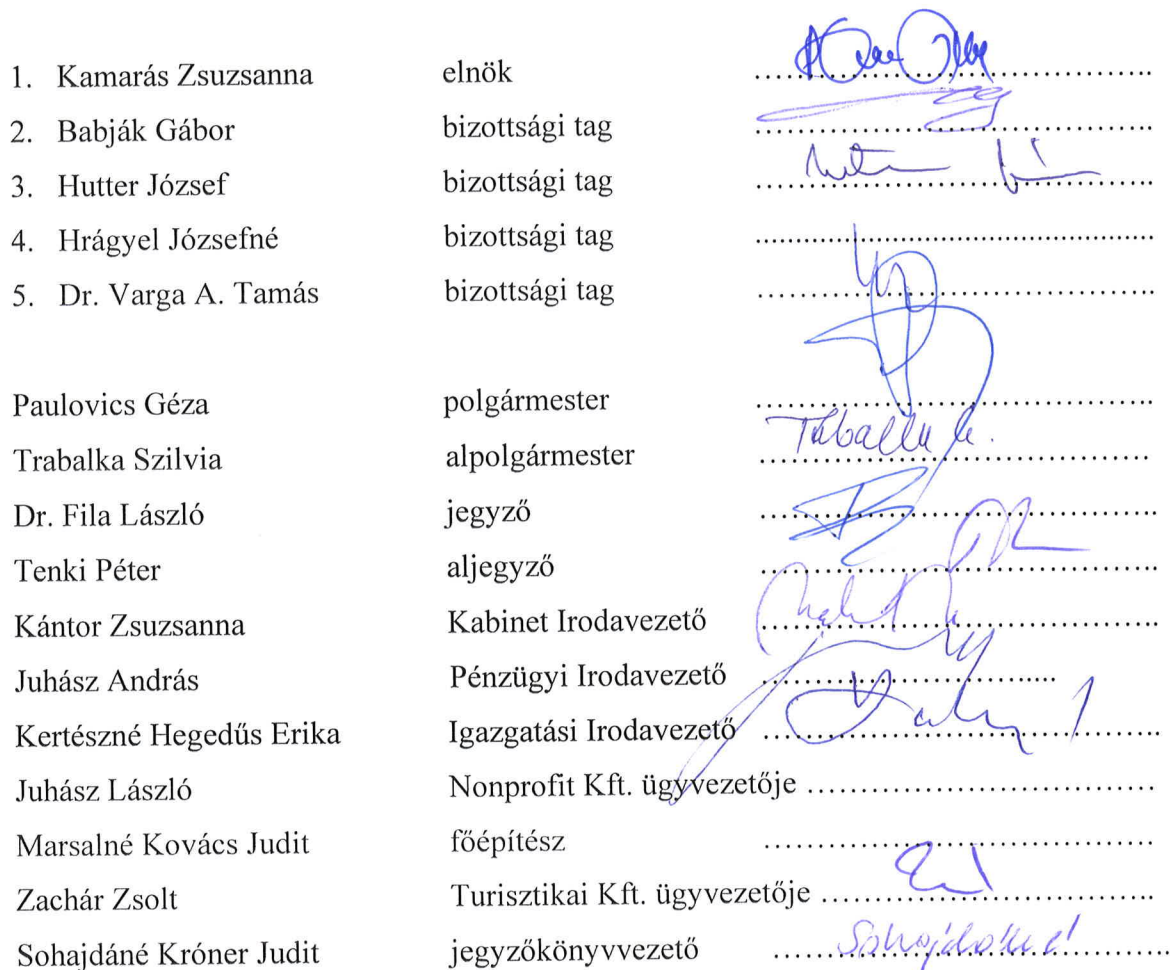 1. Kamarás Zsuzsanna elnök ................................................
2. Babják Gábor bizottsági tag ................................................
3. Hutter József bizottsági tag ................................................
4. Hrágyel Józsefné bizottsági tag ................................................
5. Dr. Varga A. Tamás bizottsági tag ................................................
Paulovics Géza polgármester ................................................
Trabalka Szilvia alpolgármester ................................................
Dr. Fila László jegyző ................................................
Tenki Péter aljegyző ................................................
Kántor Zsuzsanna Kabinet Irodavezető ................................................
Juhász András Pénzügyi Irodavezető ....................................
Kertészné Hegedűs Erika Igazgatási Irodavezető ................................................
Juhász László Nonprofit Kft. ügyvezetője ..........................................
Marsalné Kovács Judit főépítész ................................................
Zachár Zsolt Turisztikai Kft. ügyvezetője ........................................
Sohajdáné Króner Judit jegyzőkönyvvezető ................................................